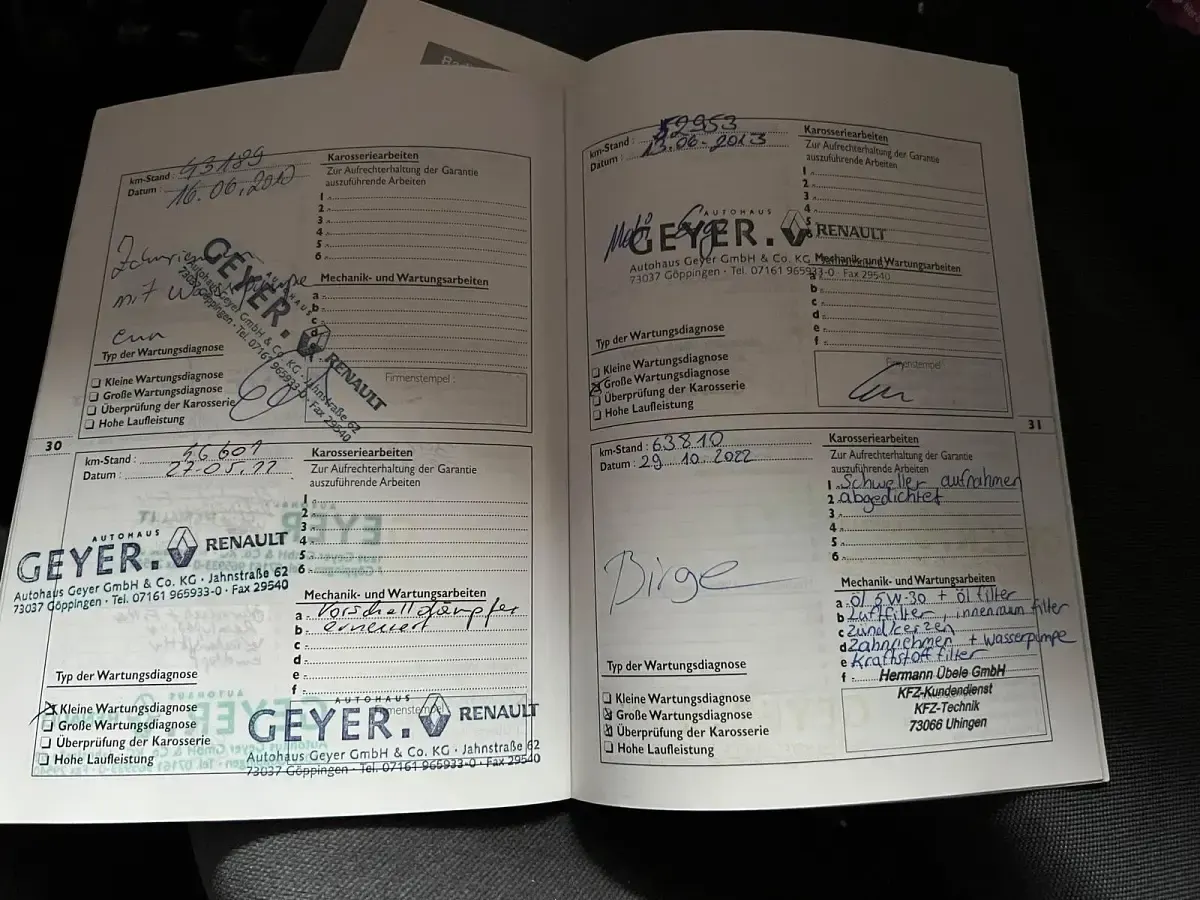 km-Stand : 43189
Datum : 16.06.2010
Karosseriearbeiten
Zur Aufrechterhaltung der Garantie
auszuführende Arbeiten
1
2
3
4
5
6
mit
Mechanik- und Wartungsarbeiten
a
b
c
d
f
AUTOHAUS
GEYER.
RENAULT
Autohaus Geyer GmbH & Co. KG · Jahnstraße 62
73037 Göppingen · Tel. 07161 965933-0 · Fax 29540
Typ der Wartungsdiagnose
Kleine Wartungsdiagnose
Große Wartungsdiagnose
Überprüfung der Karosserie
Hohe Laufleistung
Firmenstempel :
30
km-Stand : 46601
Datum : 27.05.11
Karosseriearbeiten
Zur Aufrechterhaltung der Garantie
auszuführende Arbeiten
1
2
3
4
5
6
AUTOHAUS
GEYER. RENAULT
Autohaus Geyer GmbH & Co. KG · Jahnstraße 62
73037 Göppingen · Tel. 07161 965933-0 · Fax 29540
Mechanik- und Wartungsarbeiten
a Vorschalldämpfer
b erneuert
c
d
e
f
Typ der Wartungsdiagnose
Kleine Wartungsdiagnose
Große Wartungsdiagnose
Überprüfung der Karosserie
Hohe Laufleistung
AUTOHAUS
GEYER. RENAULT
Autohaus Geyer GmbH & Co. KG · Jahnstraße 62
73037 Göppingen · Tel. 07161 965933-0 · Fax 29540
km-Stand : 52953
Datum : 13.06.2013
Karosseriearbeiten
Zur Aufrechterhaltung der Garantie
auszuführende Arbeiten
1
2
3
4
5
6
AUTOHAUS
GEYER. RENAULT
Autohaus Geyer GmbH & Co. KG
73037 Göppingen · Tel. 07161 965933-0 · Fax 29540
Mechanik- und Wartungsarbeiten
a
b
c
d
e
f
Typ der Wartungsdiagnose
Kleine Wartungsdiagnose
Große Wartungsdiagnose
Überprüfung der Karosserie
Hohe Laufleistung
Firmenstempel
31
km-Stand : 63810
Datum : 29.10.2022
Karosseriearbeiten
Zur Aufrechterhaltung der Garantie
auszuführende Arbeiten
1 Schweller aufnahmen
2 abgedichtet
3
4
5
6
Birge
Mechanik- und Wartungsarbeiten
a öl 5W-30 + öl filter
b Luftfilter, innenraum filter
c Zündkerzen
d Zahnriehmen + wasserpumpe
e Kraftstoff filter
f
Typ der Wartungsdiagnose
Kleine Wartungsdiagnose
Große Wartungsdiagnose
Überprüfung der Karosserie
Hohe Laufleistung
Hermann Übele GmbH
KFZ-Kundendienst
KFZ-Technik
73066 Uhingen